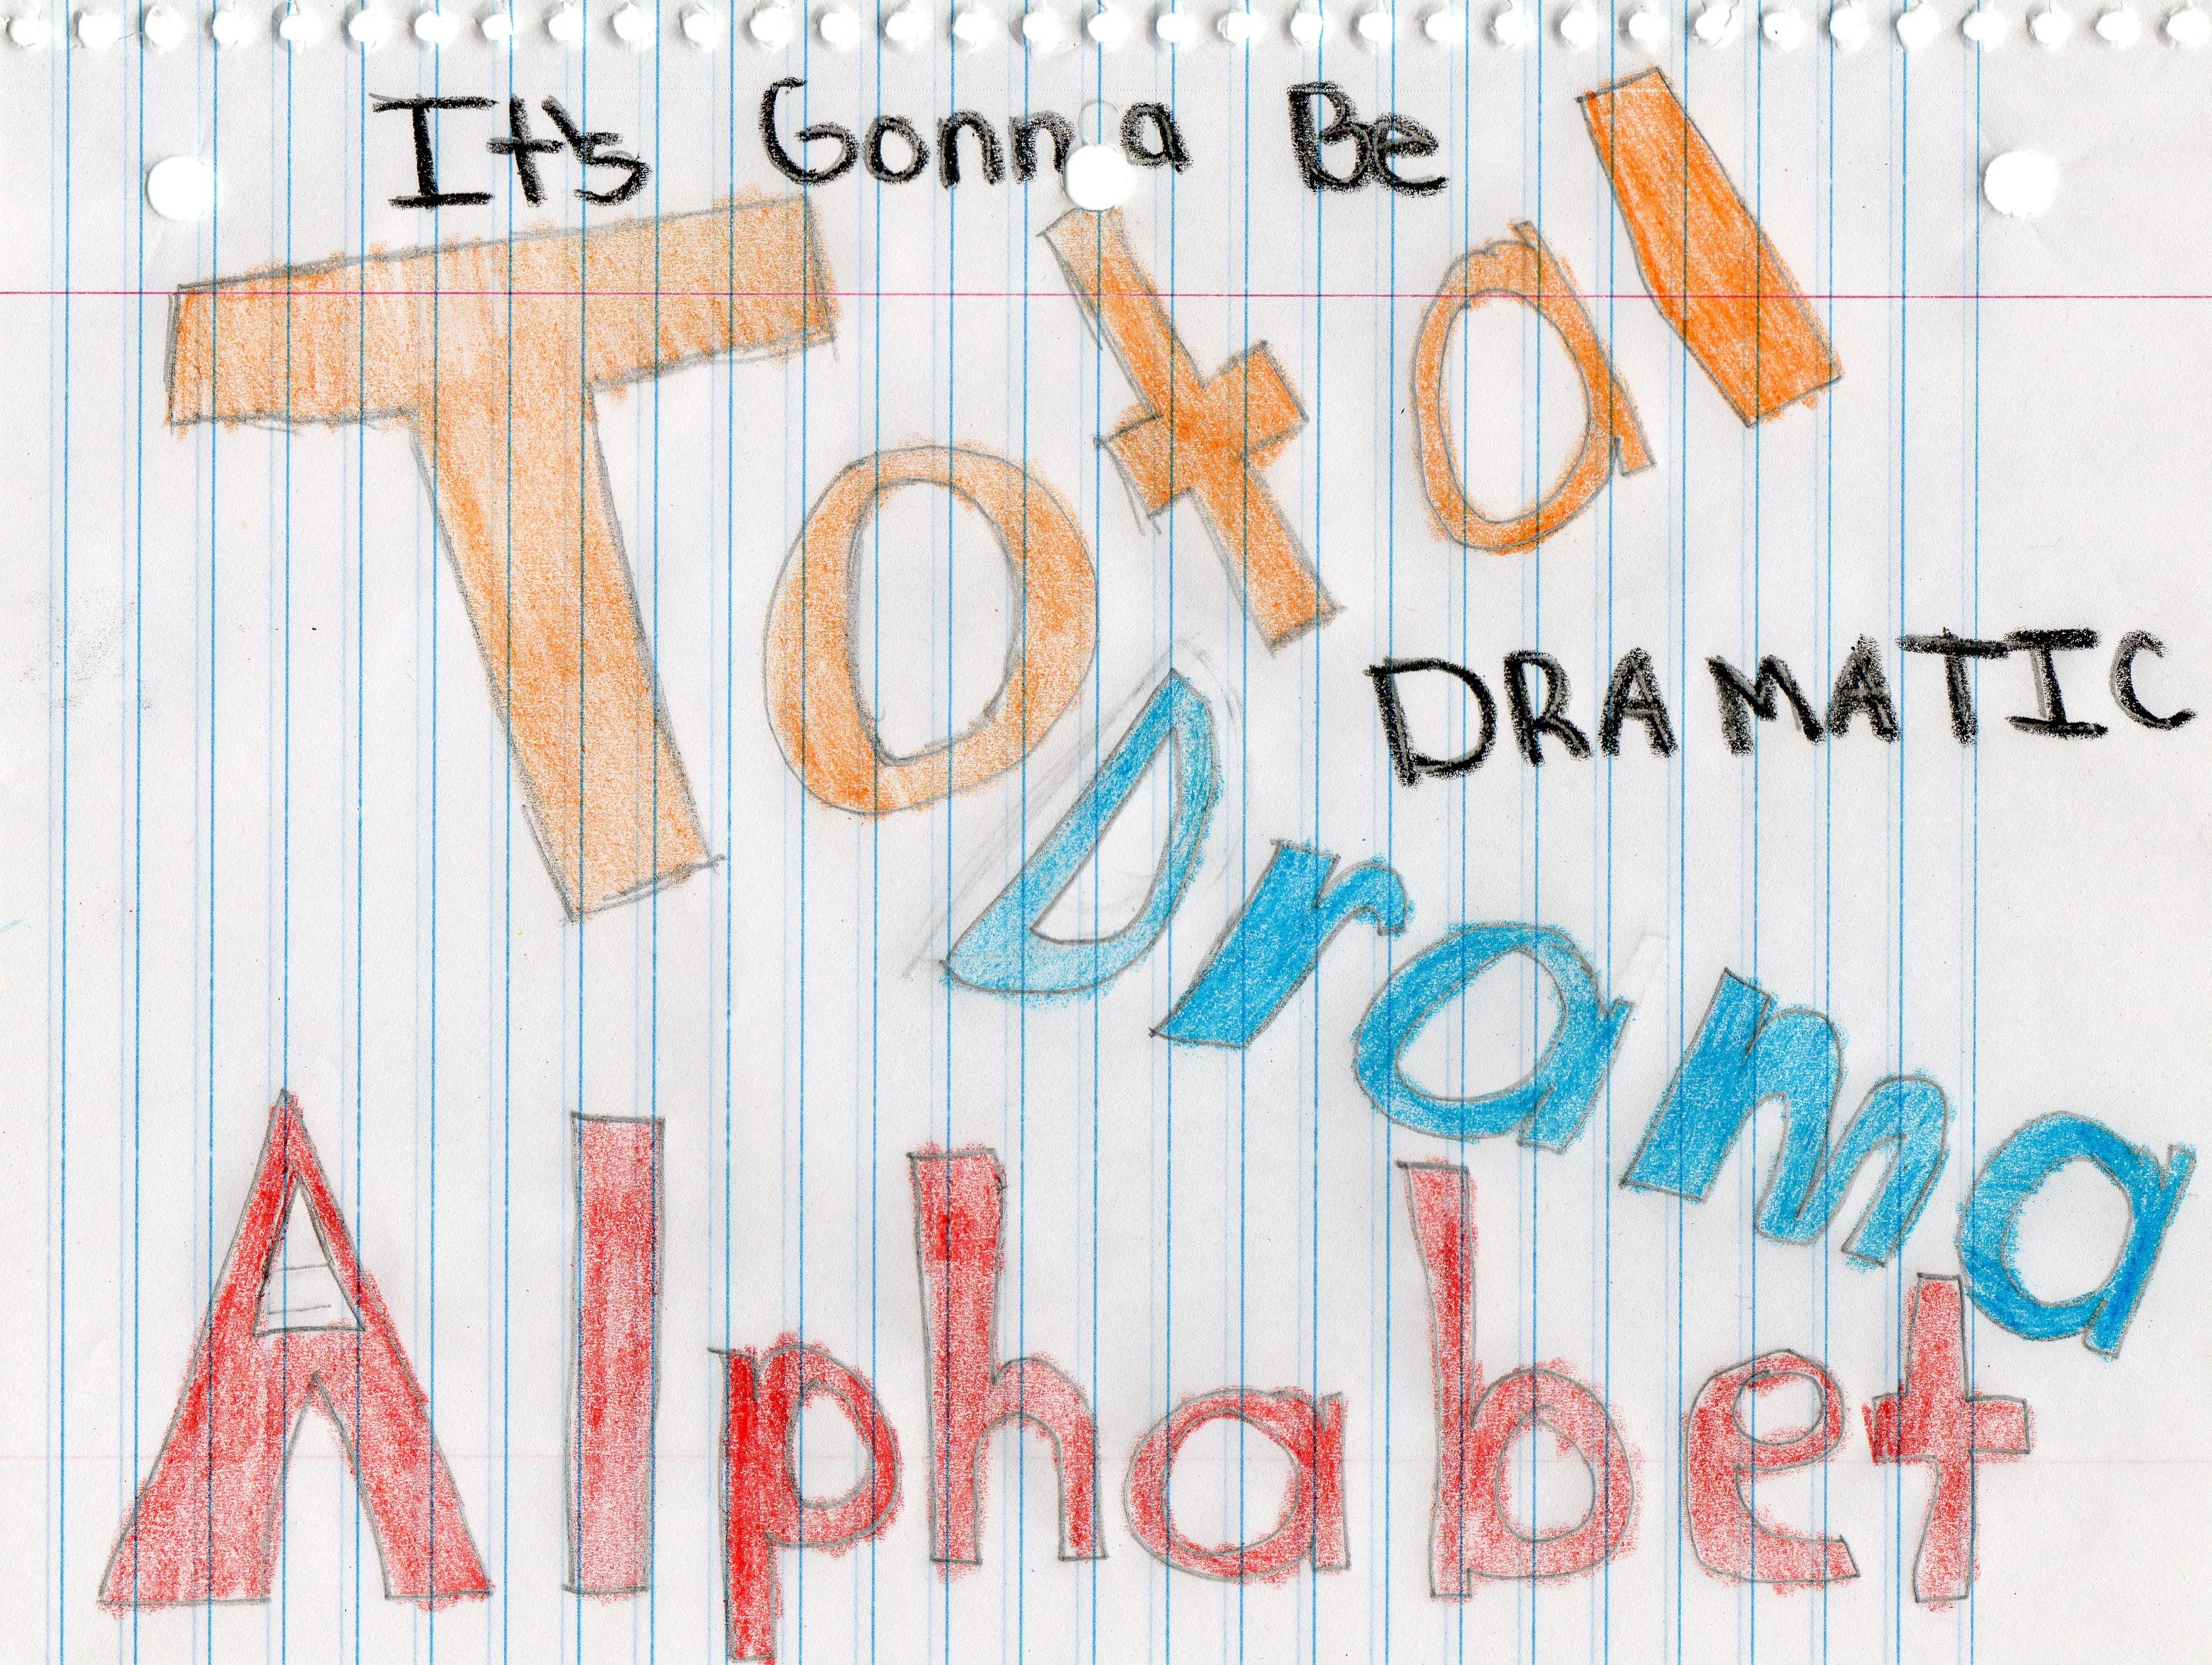 It's Gonna Be
Total
DRAMATIC
Drama
Alphabet